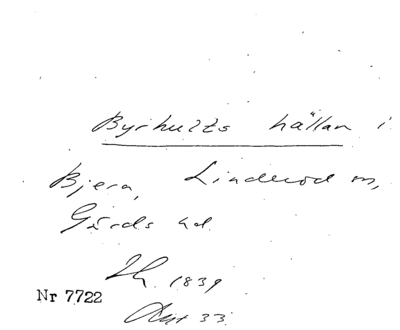 Byrhults hällan i
Bjera, Linderod sn,
Gärds hd.
1839
Nr 7722
33.